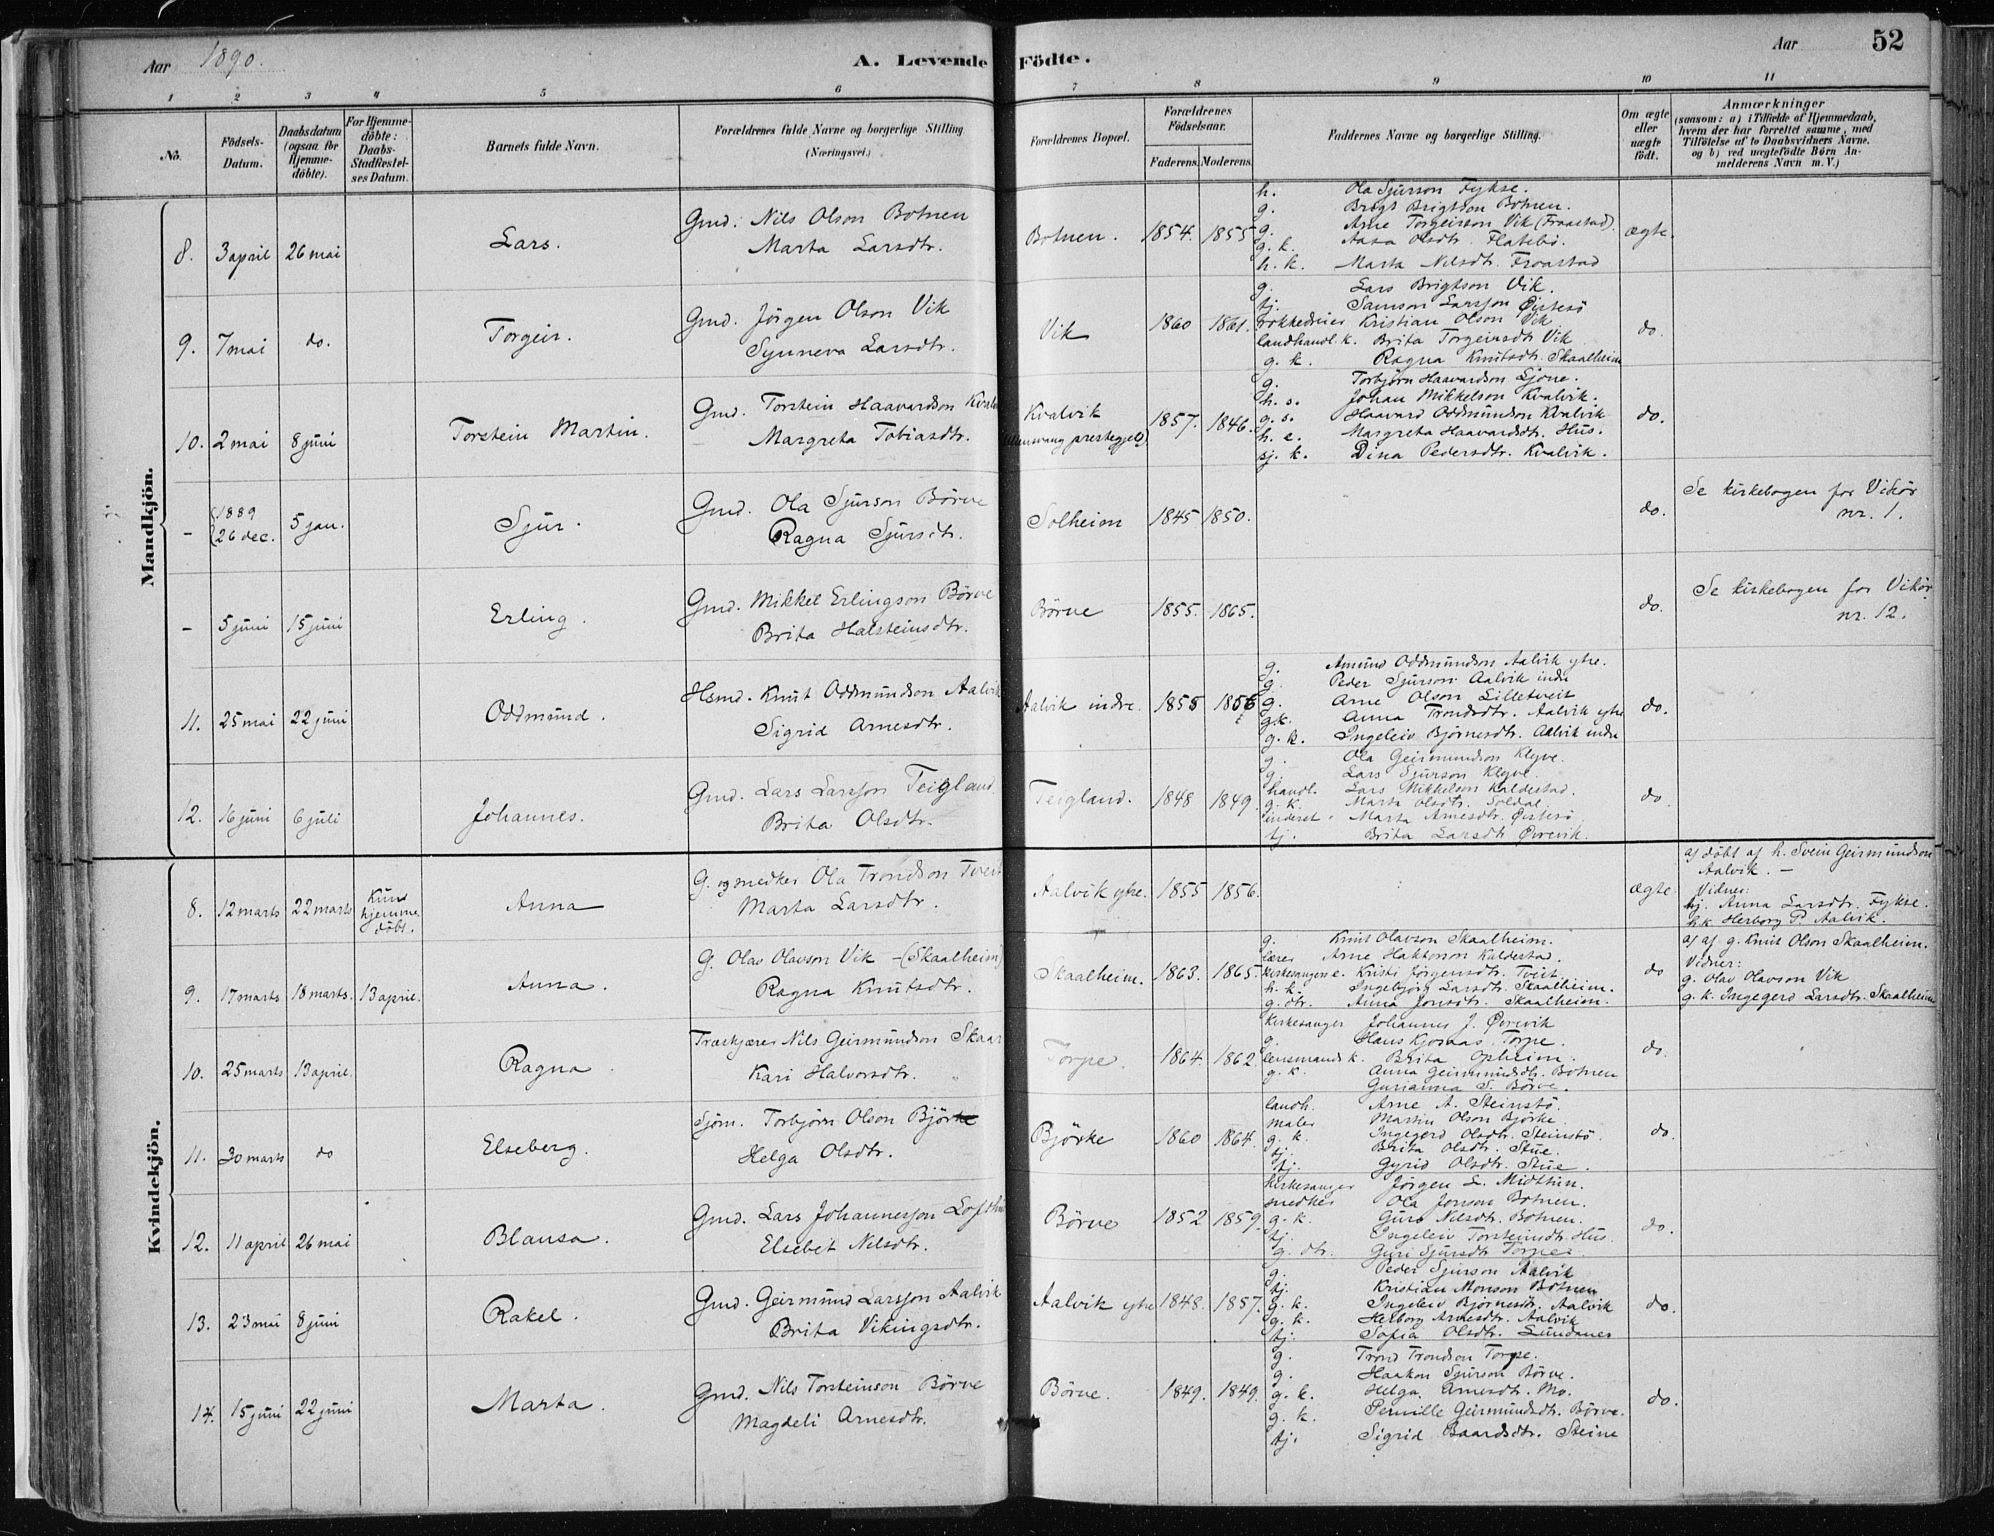 Aar 1890.
A. Levende Födte.
Aar
52
1 2 3 4 5 6 7 8 9 10 11
No.
Födsels-Datum.
Daabsdatum (ogsaa for Hjemme-döbte).
For Hjemme-döbte: Daabs-Stadfæstel-ses Datum.
Barnets fulde Navn.
Forældrenes fulde Navne og borgerlige Stilling (Næringsvei.)
Forældrenes Bopæl.
Forældrenes Födselsaar.
Faderens. Moderens.
Faddernes Navne og borgerlige Stilling.
Om ægte eller uægte födt.
Anmærkninger
(saasom: a) i Tilfælde af Hjemmedaab,
hvem der har forrettet samme, med
Tilföielse af to Daabsvidners Navne.
og b) ved uægtefödte Börn An-
melderens Navn m. V.)
Mandkjön.
8. 3 april 26 mai
Lars.
Gmd. Nils Olson Botnen
Marta Larsdtr.
Botnen. 1854. 1855
h. Ola Sjurson Fykse.
g. Brigt Brigtson Botnen.
g. Arne Torgeirson Vik (Fraastad).
g. k. Aasa Olsdtr. Flatebö.
h. k. Marta Nilsdtr. Fraastad
ægte.
9. 7 mai do.
Torgeir.
Gmd. Jörgen Olson Vik
Synneva Larsdtr.
Vik 1860 1861.
g. Lars Brigtson Vik.
tj. Samson Larsson Öistesö
rokkedreier Kristian Olson Vik
landhandl. k. Brita Torgeirsdtr Vik
g. k. Ragna Knutsdtr. Skaalheim
do.
10. 2 mai 8 juni
Torstein Martin.
Gmd. Torstein Haavardson Kvalvik
Margreta Tobiasdtr.
Kvalvik
(Ullensvang prestegjeld) 1857. 1846.
g. Torbjörn Haavardson Ljone.
h. s. Johan Mikkelson Kvalvik.
g. s. Haavard Oddmundson Kvalvik
h. e. Margreta Haavardsdtr. Hus.
sj. k. Dina Pedersdtr. Kvalvik.
do.
- (1889 26 dec. 5 jan.
Sjur.
Gmd. Ola Sjurson Börve
Ragna Sjursdtr.
Solheim 1845 1850.
do.
Se kirkebogen for Vikör
nr. 1.
- 5 juni 15 juni
Erling.
Gmd. Mikkel Erlingson Börve
Brita Halsteinsdtr.
Börve 1855. 1865.
do.
Se kirkebogen for Vikör
nr. 12.
11. 25 mai 22 juni
Oddmund.
Hsmd. Knut Oddmundson Aalvik
Sigrid Arnesdtr.
Aalvik indre. 1855 1856
g. Amund Oddmundson Aalvik ytre.
g. Peder Sjurson Aalvik indre
g. Arne Olson Lilletveit
g.k. Anna Trondsdtr. Aalvik ytre
g. k. Ingeleiv Björnesdtr. Aalvik indre
do.
12. 16 juni 6 juli
Johannes.
Gmd. Lars Larsson Teigland
Brita Olsdtr.
Teigland. 1848 1849.
g. Ola Geirmundson Klyve.
g. Lars Sjurson Klyve.
handl. Lars Mikkelson Kaldestad.
g. k. Marta Olsdtr. Soldal
inderst. Marta Arnesdtr. Öistesö
tj. Brita Larsdtr Övrevik.
do.
Kvindekjön.
8. 12 marts 22 marts Kun hjemme döbt.
Anna
G. og snedker Ola Trondson Tveit
Marta Larsdtr.
Aalvik ytre. 1855 1856.
ægte.
a) döbt af h. Svein Geirmundson
Aalvik. —
Vidner:
tj. Anna Larsdtr. Fykse.
h.k. Herborg P. Aalvik.
9. 17 marts 18 marts. 13 april.
Anna.
G. Olav Olavson Vik - (Skaalheim)
Ragna Knutsdtr.
Skaalheim. 1863. 1865.
g. Knut Olavson Skaalheim.
lærer Arne Haktorson Kaldestad.
kirkesangers e. Kristi Jörgensdtr. Tveit
h. k. Ingebjörg Larsdtr. Skaalheim.
g. dtr. Anna Jonsdtr. Skaalheim.
do
a) af g. Knut Olson Skaalheim.
Vidner:
g. Olav Olavson Vik
g. k. Ingegerd Larsdtr. Skaalheim
10. 25 marts 13 april.
Ragna.
Træskjærer Nils Geirmundson Skaar
Kari Halvorsdtr.
Torpe. 1864. 1862
kirkesanger Johannes J. Övrevik
g. Hans Torpe.
lensmands k. Brita Opheim.
g. k. Anna Geirmundsdtr. Botnen
Gurianna S. Börve.
do.
11. 30 marts do
Elseberg.
Sjöm. Torbjörn Olson Björke
Helga Olsdtr.
Björke 1860 1864.
landh. Arne A. Steinstö.
maler Martin Olson Björke
g. k. Ingegerd Olsdtr. Steinstö.
tj. Brita Olsdtr. Stue.
tj. Gyrid Olsdtr. Stue.
do.
12. 11 april 26 mai
Blansa.
Gmd. Lars Johannesson Lofthus
Elsebet Nilsdtr.
Börve 1852 1859.
kirkesanger Jörgen L. Midttun.
snedker Ola Jonson Botnen.
g. k. Guro Nilsdtr. Botnen.
tj. Ingeleiv Torsteinsdtr. Hus.
g. dtr. Guri Sjursdtr Torpe.
do.
13. 23 mai 8 juni
Rakel.
Gmd. Geirmund Larsson Aalvik
Brita Vikingsdtr.
Aalvik ytre 1848. 1857.
g. Peder Sjurson Aalvik
tj. Kristian Monson Botnen
g. k. Ingeleiv Björnesdtr. Aalvik
g. k. Herborg Arnesdtr. Aalvik
tj. Sofia Olsdtr. Sundanes
do.
14. 15 juni 22 juni
Marta.
Gmd. Nils Torsteinson Börve
Magdeli Arnesdtr.
Börve. 1849. 1849.
g. Trond Trondson Torpe.
g. Haakon Sjurson Börve.
g. k. Helga Arnesdtr. Mo.
g. k. Pernille Geirmundsdtr. Börve.
tj. Sigrid Baardsdtr. Steine
do.